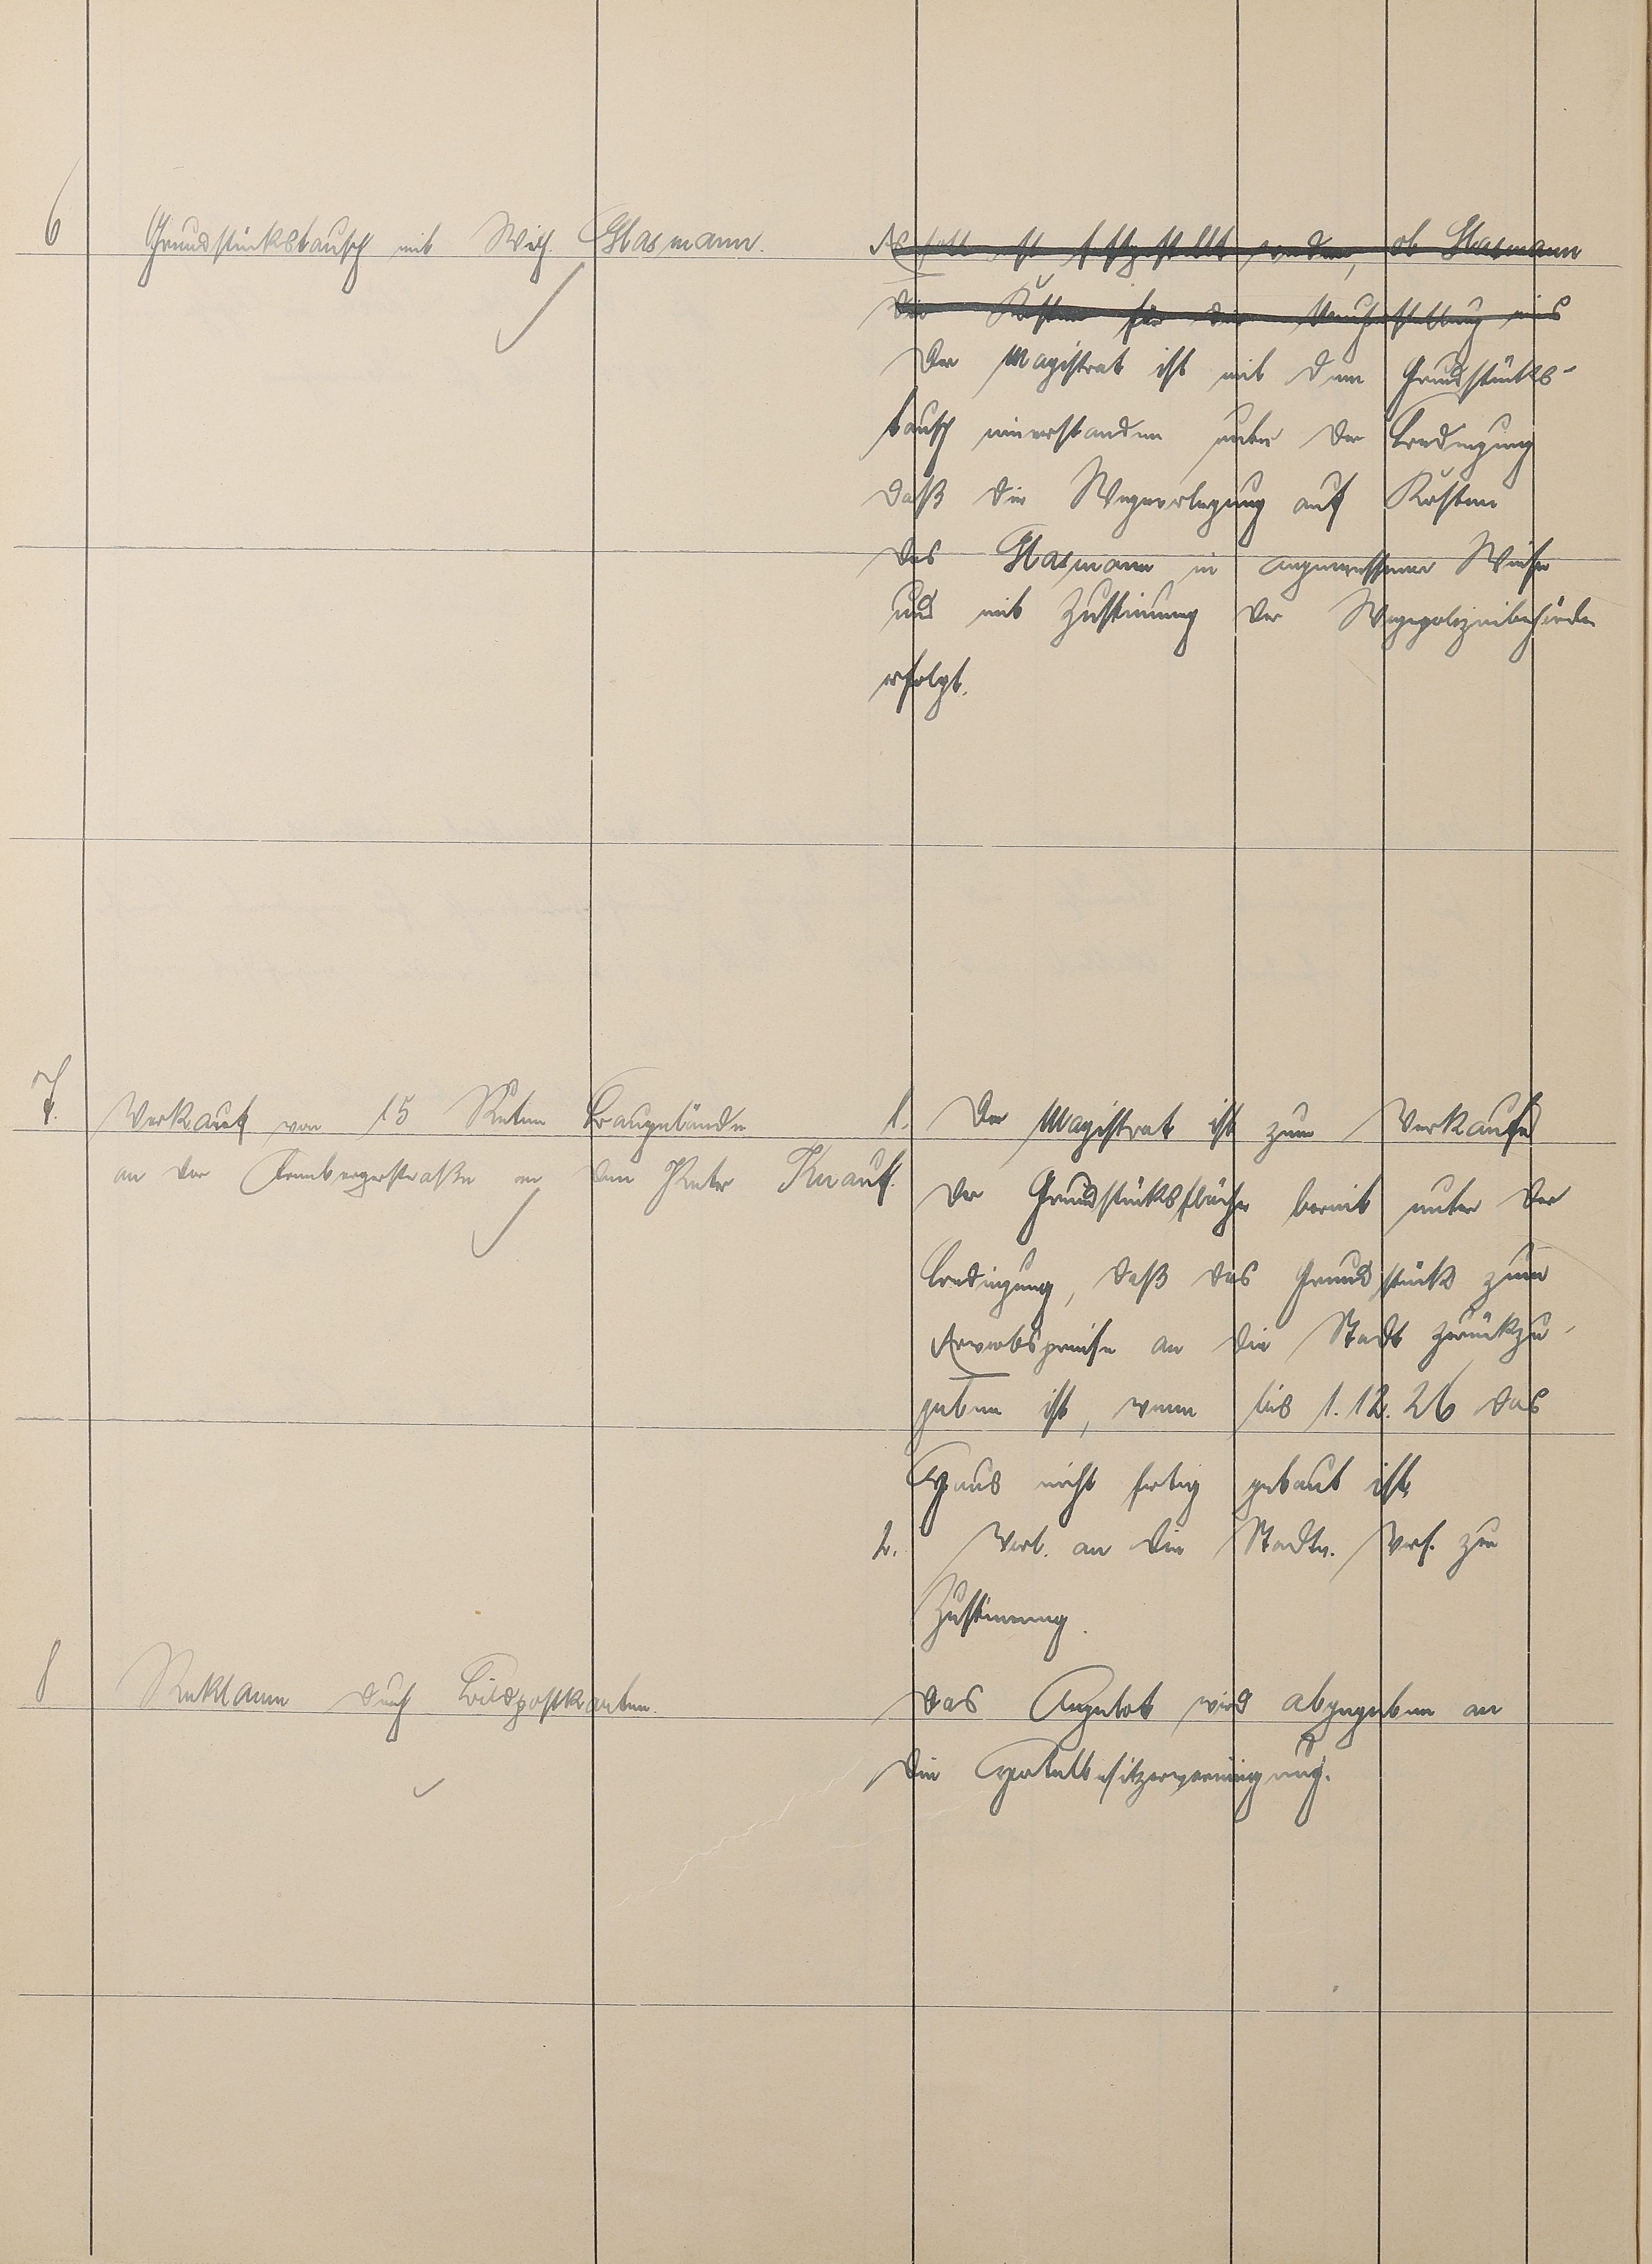 6
Grundstückstausch mit Wilh. Glasmann.
Es soll erst festgestellt werden, ob Glasmann
die Kosten für den
Der Magistrat ist mit dem Grundstücks-
tausch einverstanden unter der Bedingung
daß die Wegeverlegung auf Kosten
des Glasmann in angemessener Weise
und mit Zustimmung der Wegepolizeibehörde
erfolgt.
7.
Verkauf von 15 Ruten Baugelände
an der straße an den Peter Knauf.
1. Der Magistrat ist zum Verkaufe
der Grundstücksfläche bereit unter der
Bedingung, daß das Grundstück zum
Erwerbspreise an die Stadt zurückzu-
geben ist, wenn bis 1.12.26 das
Haus nicht fertig gebaut ist.
2. Vorl. an die Stadtv. Vers. zur
Zustimmung.
8
Reklame durch Bildpostkarten.
Das Angebot wird abgegeben an
die Hotelbesitzervereinigung.